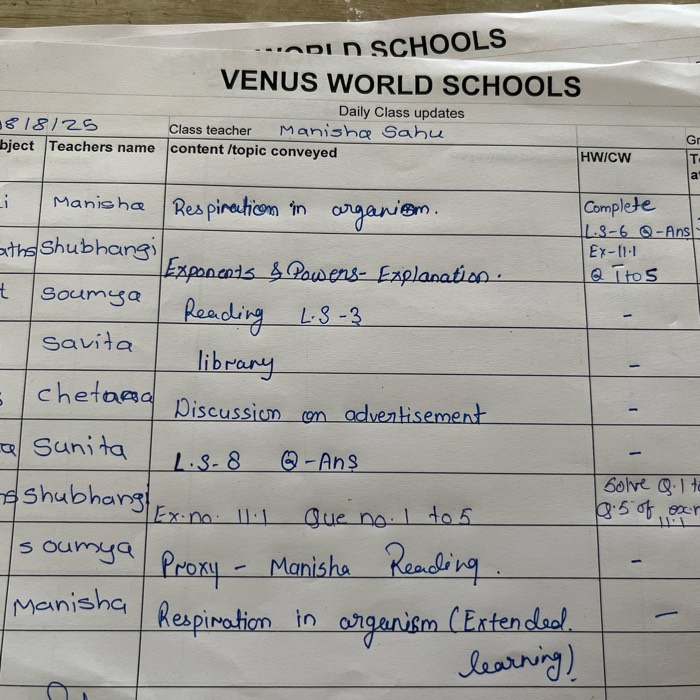 WORLD SCHOOLS
VENUS WORLD SCHOOLS
Daily Class updates
8/8/25 Class teacher Manisha Sahu Gr
bject Teachers name content /topic conveyed HW/CW
i Manisha Respiration in organism. Complete
L.S-6 Q-Ans
aths Shubhangi Exponents & Powers- Explanation. Ex-11.1
Q 1 to 5
t Soumya Reading L.S-3 -
Savita library -
Chetana Discussion on advertisement -
Sunita L.S-8 Q-Ans -
Shubhangi Ex.no. 11.1 Que no. 1 to 5 Solve Q.1 to
Q.5 of
11.1
Soumya Proxy - Manisha Reading. -
Manisha Respiration in organism (Extended. -
learning)